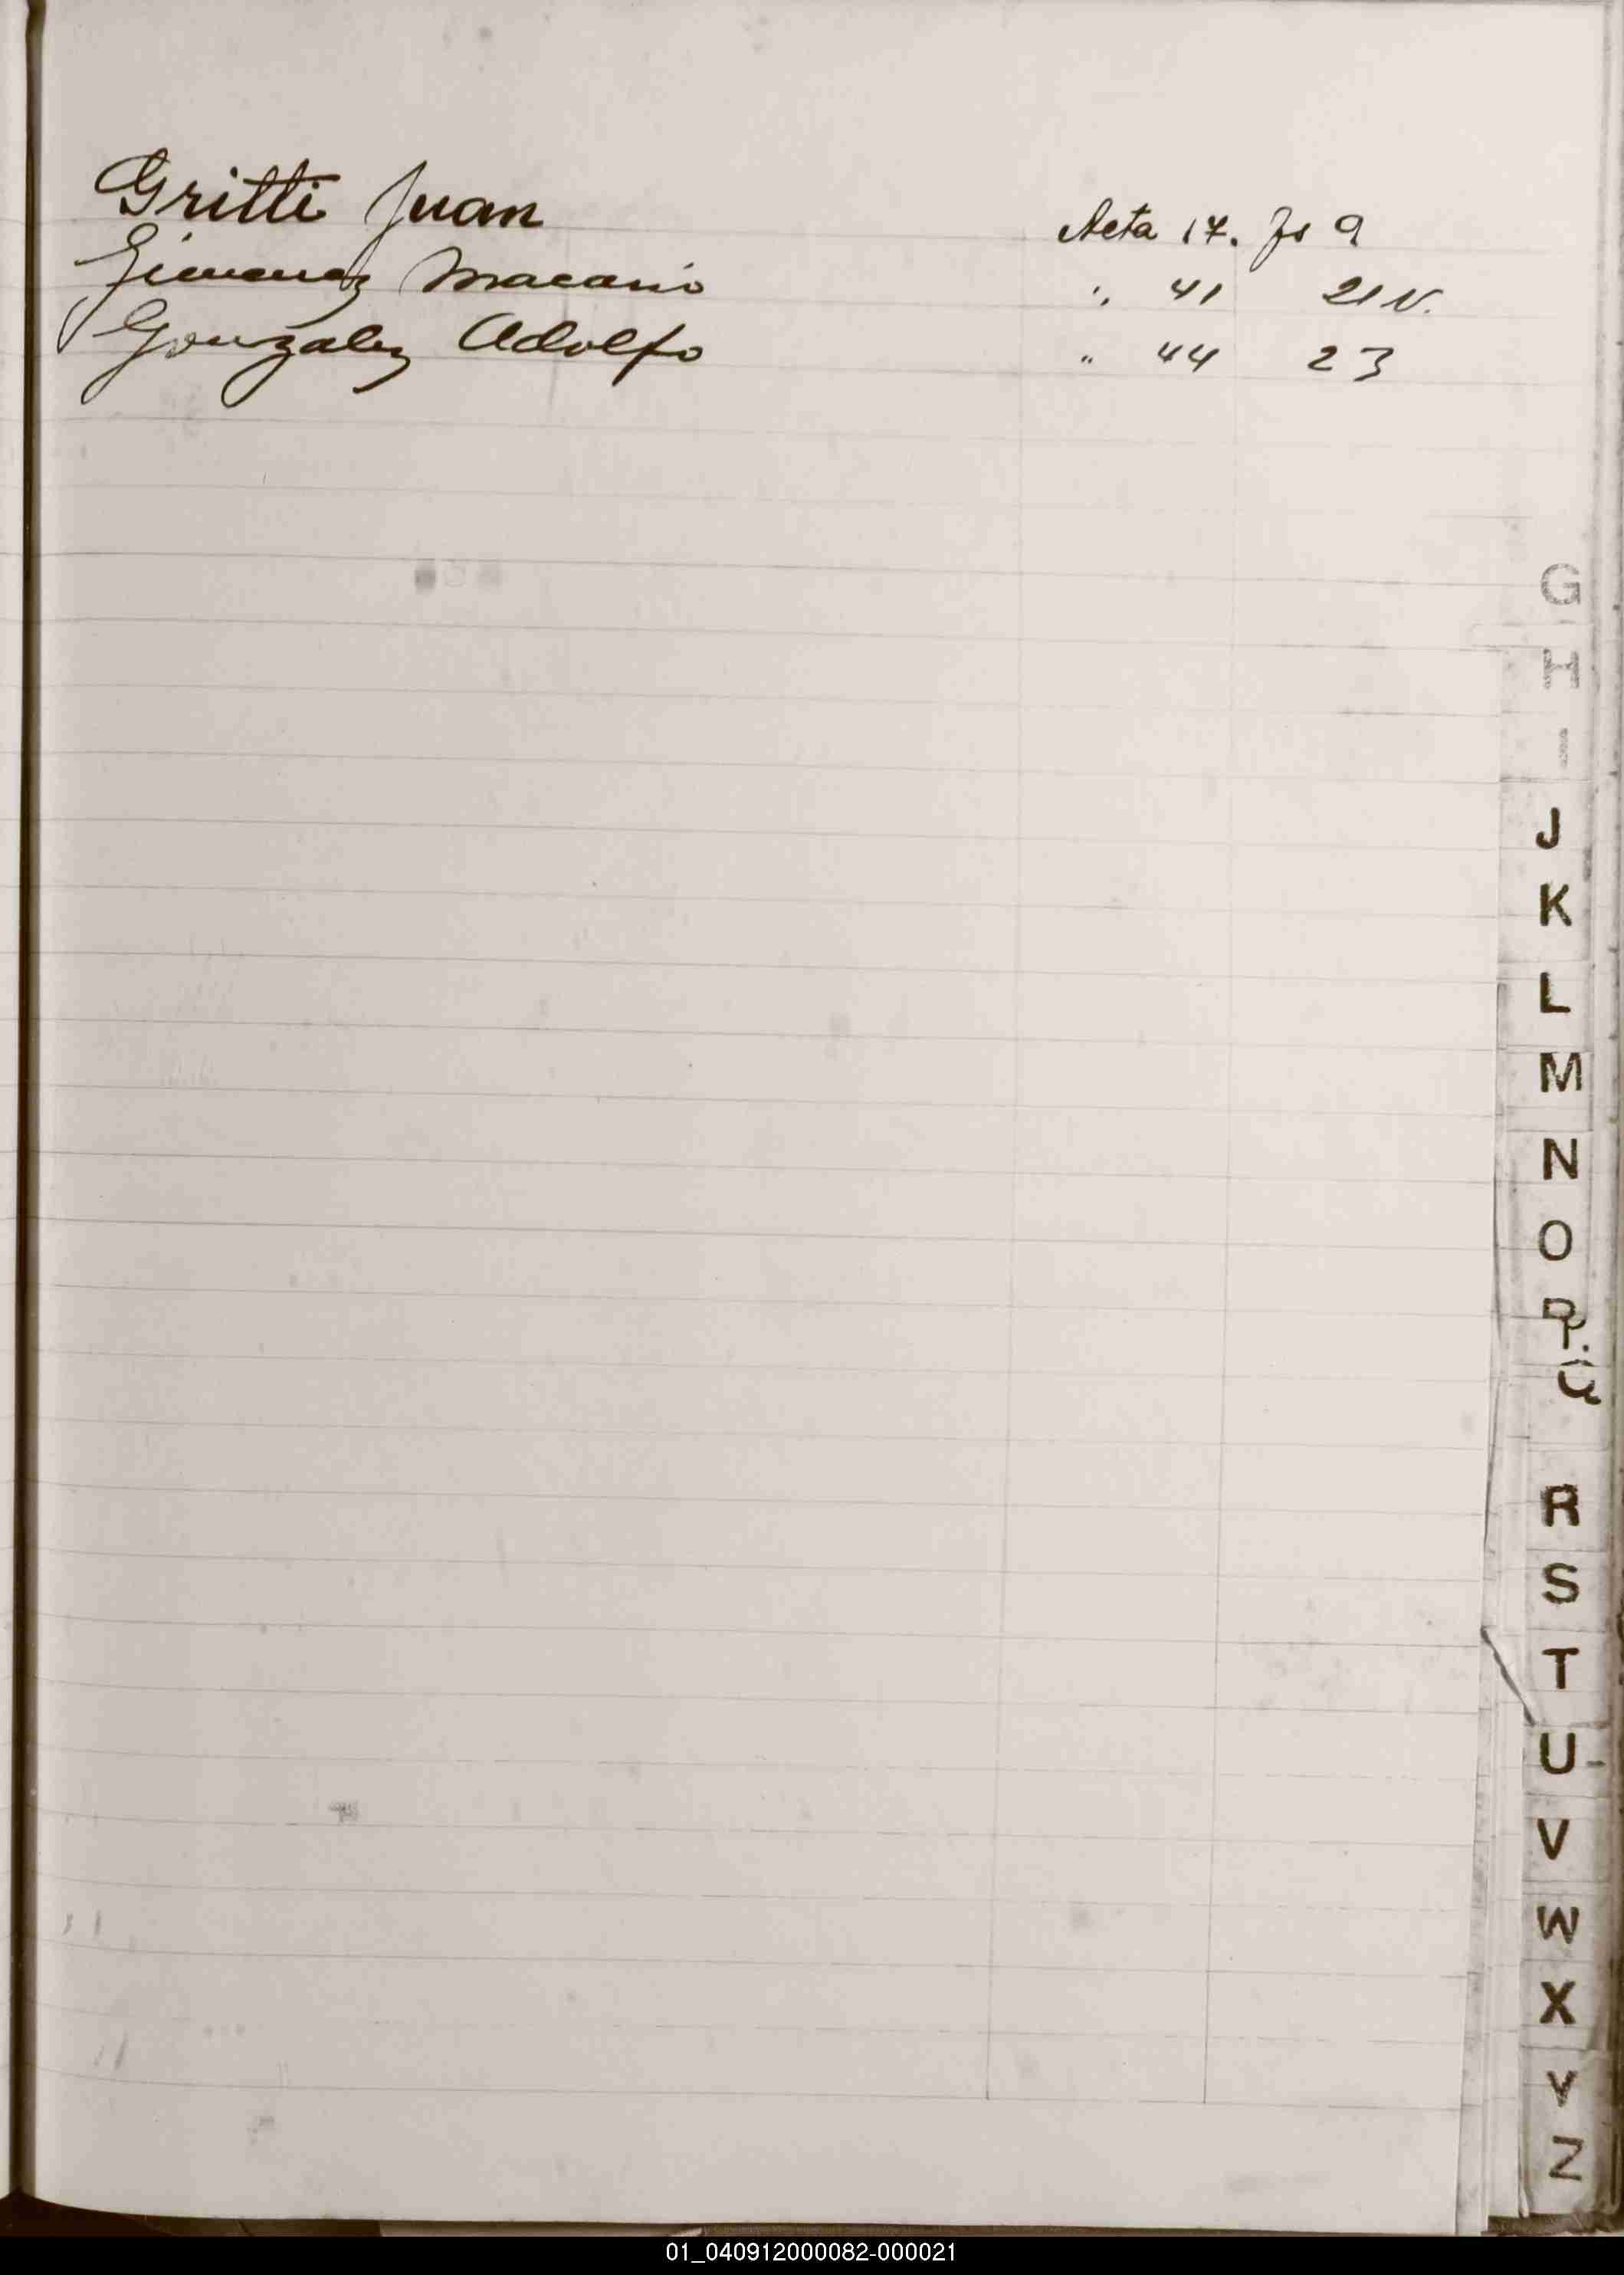 Gritti Juan Acta 17. fs 9
Gimenez Macario " 41 21 v.
Gonzalez Adolfo " 44 23
G
H
I
J
K
L
M
N
O
P.
Q
R
S
T
U-
V
W
X
Y
Z
01_040912000082-000021